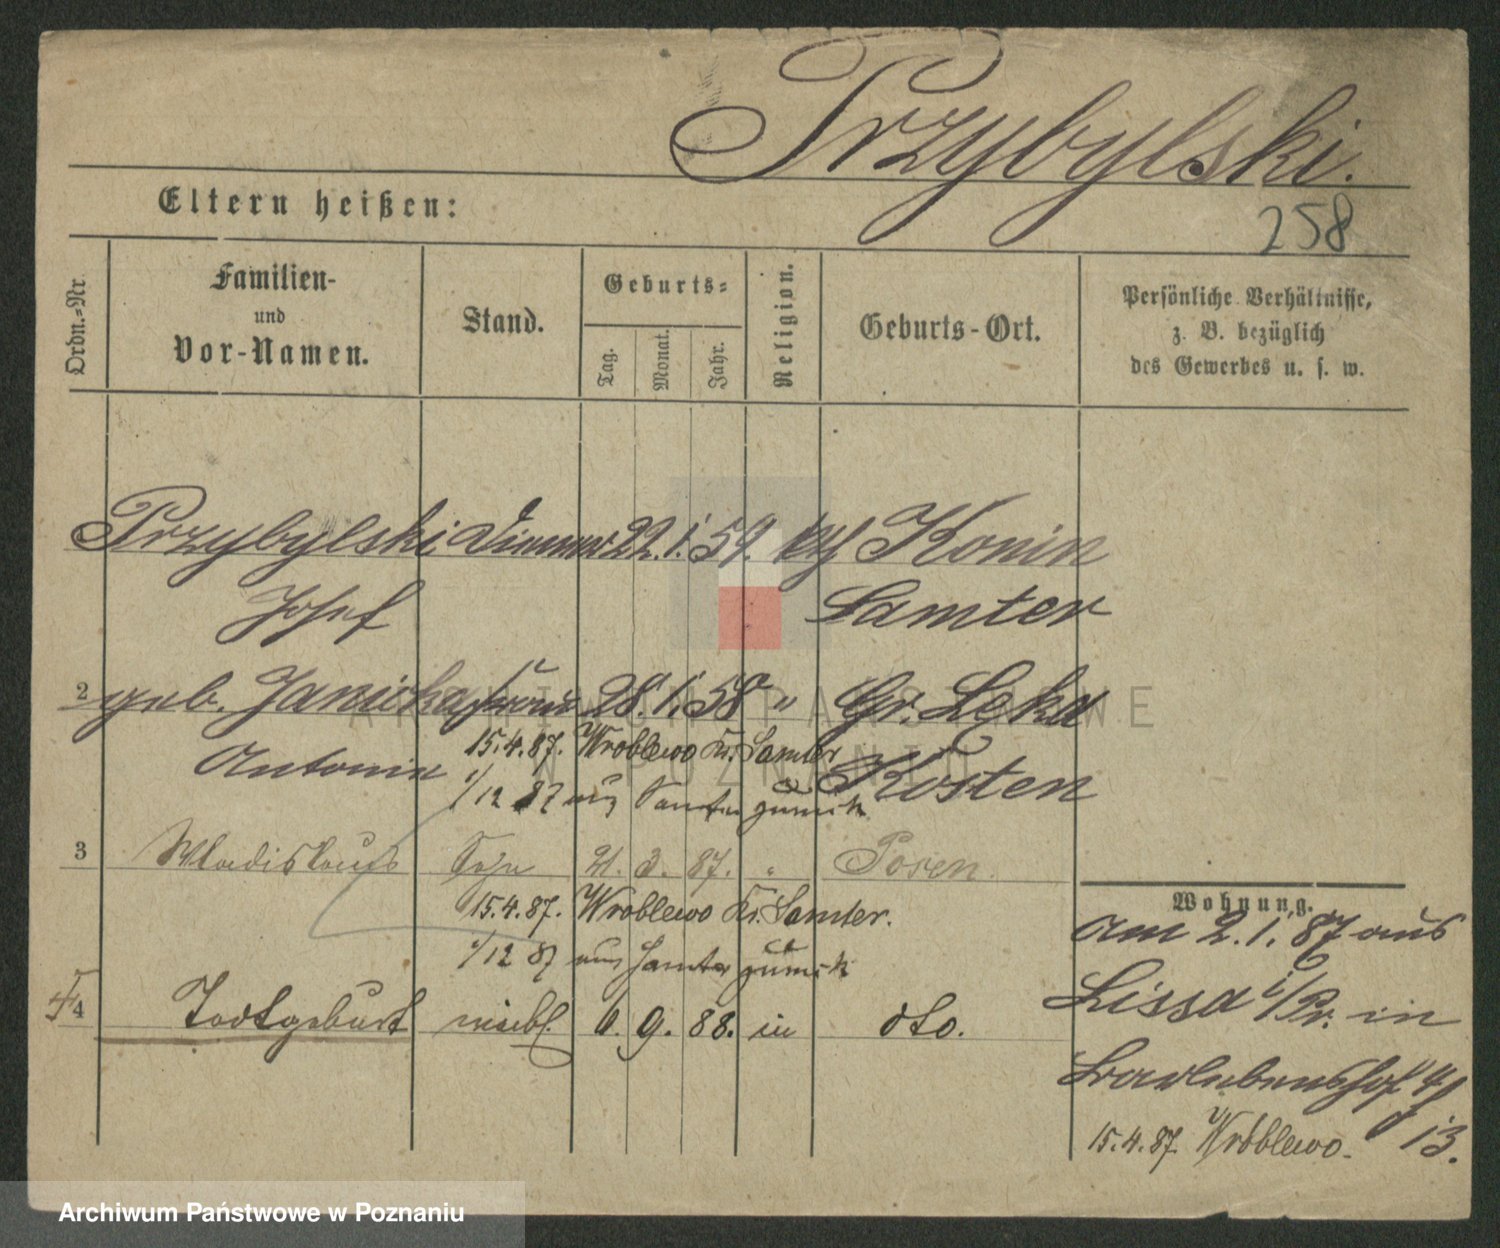 Przybylski.
Eltern heißen:
258
Ordn.-Nr
Familien-
und
Vor-Namen.
Stand.
Geburts-
Tag.
Monat.
Jahr.
Religion.
Geburts-Ort.
Persönliche Verhältnisse,
z. B. bezüglich
des Gewerbes u. s. w.
Przybylski 22. 1. 59. kth Konin
Josef Samter
2 geb. Janicka Frau 28. 1. 58 " Gr. Leka
15.4.87. Wroblewo Kr. Samter
Antonin Kosten
1/12 87 aus Samter zurück
3 Wladislaus Sohn 21. 3. 87. " Posen.
15.4.87. Wroblewo Kr. Samter.
1/12 87 aus Samter zurück
4 Todtgeburt weibl. 6. 9. 88. in dto.
Wohnung.
am 2. 1. 87 aus
Lissa i/Pr. in
15.4.87. Wróblewo.
13.
ARCHIWUM PAŃSTWOWE
W POZNANIU
Archiwum Państwowe w Poznaniu